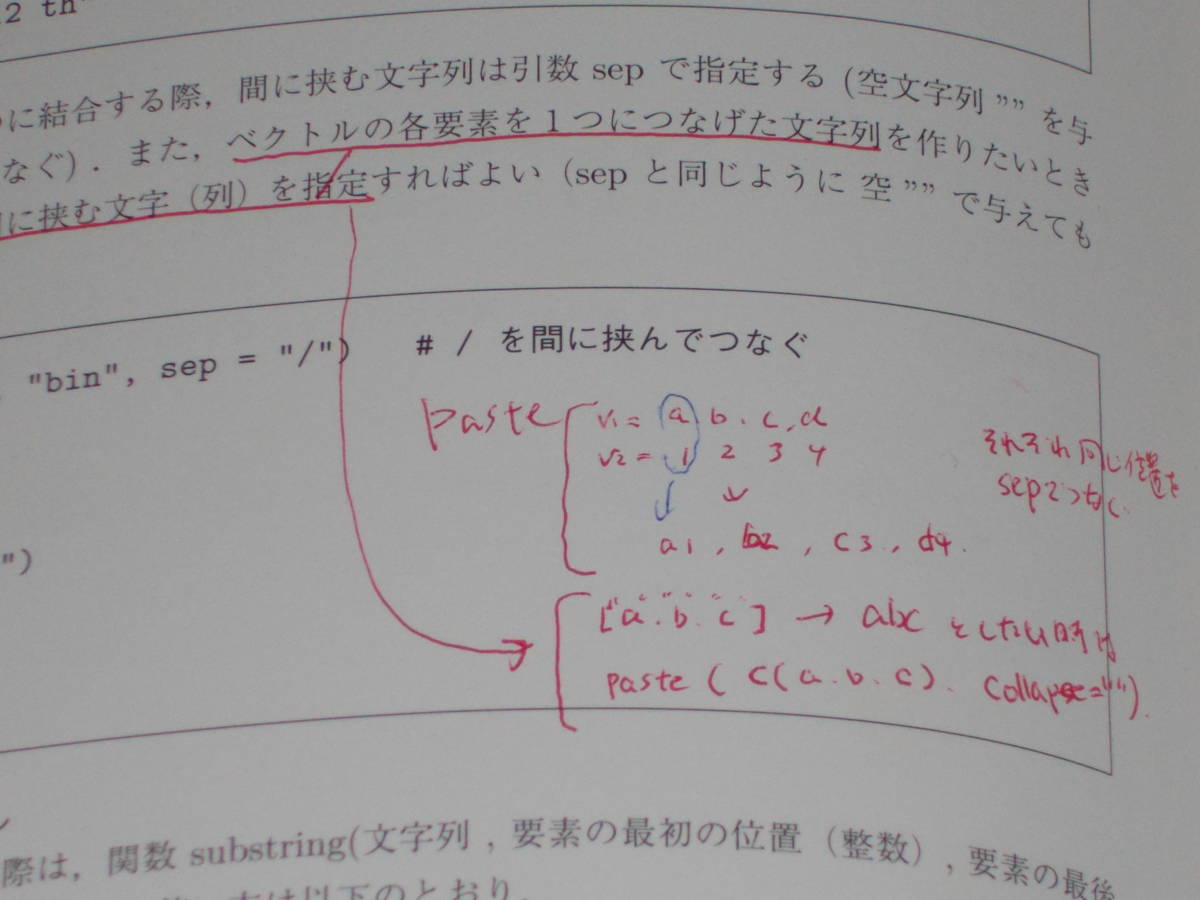 2 th"
に結合する際，間に挟む文字列は引数 sep で指定する (空文字列 ”” を与
なぐ)．また，ベクトルの各要素を１つにつなげた文字列を作りたいとき
に挟む文字（列）を指定すればよい（sep と同じように 空 ”” で与えても
"bin", sep = "/")　# / を間に挟んでつなぐ
paste
v1= a b . c , d
v2= 1 2 3 4
a1 , b2 , c3 , d4 .
それぞれ同じ位置を
sepでつなぐ
")
["a". "b". "c"] → abc としたい時は
paste ( c(a.b.c). collapse="").
際は，関数 substring(文字列 , 要素の最初の位置（整数）, 要素の最後
は以下のとおり．